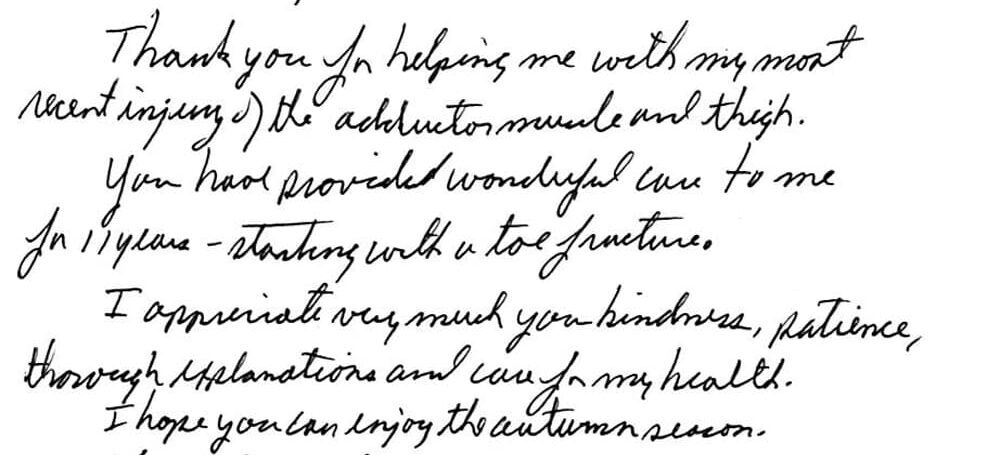 Thank you for helping me with my most
recent injury of the adductor muscle and thigh.
You have provided wonderful care to me
for 11 years - starting with a toe fracture.
I appreciate very much your kindness, patience,
thorough explanations and care for my health.
I hope you can enjoy the autumn season.